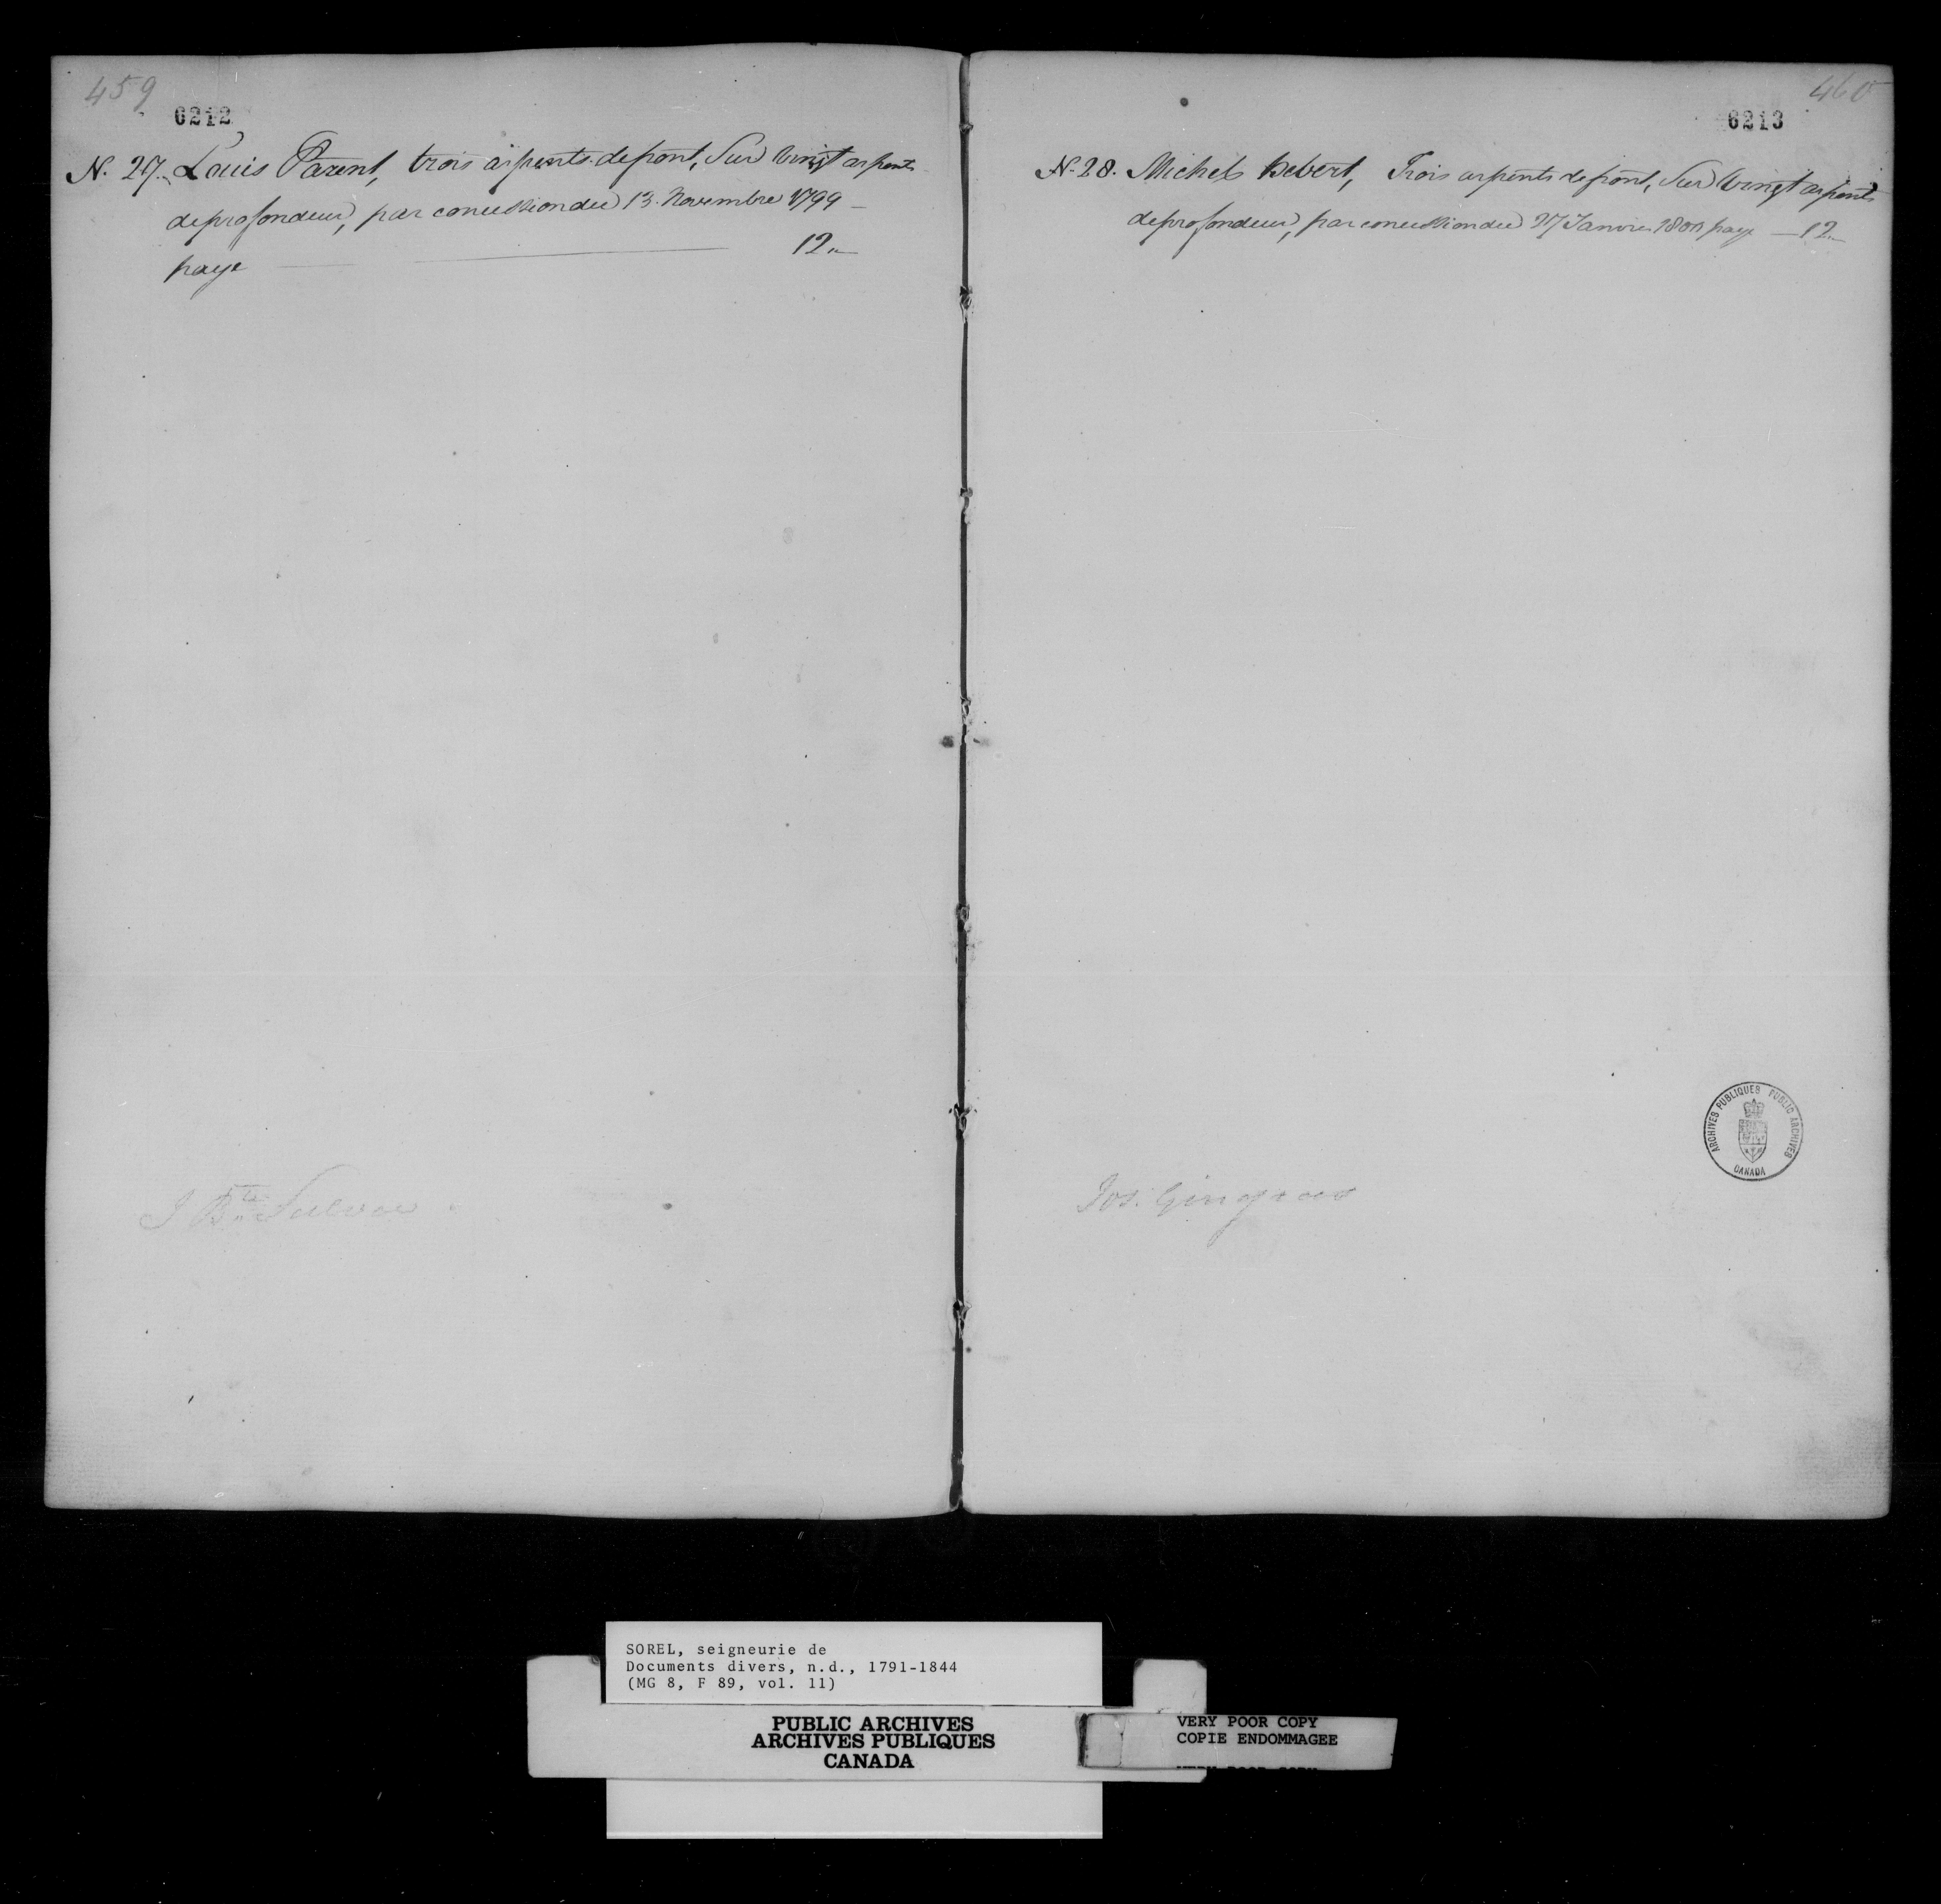 459
6212
N. 27. Louis Parent, trois arpents de front, Sur vingt arpents
de profondeur, par concession du 13. Novembre 1799 —
paye — 12 "
J Bte
460
6213
N. 28. Michel Hebert, Trois arpents de front, Sur vingt arpents
de profondeur, par concession du 27 Janvier 1800 paye — 12 "
ARCHIVES PUBLIQUES PUBLIC ARCHIVES
CANADA
Jos. Gingras
SOREL, seigneurie de
Documents divers, n.d., 1791-1844
(MG 8, F 89, vol. 11)
PUBLIC ARCHIVES
ARCHIVES PUBLIQUES
CANADA
VERY POOR COPY
COPIE ENDOMMAGEE